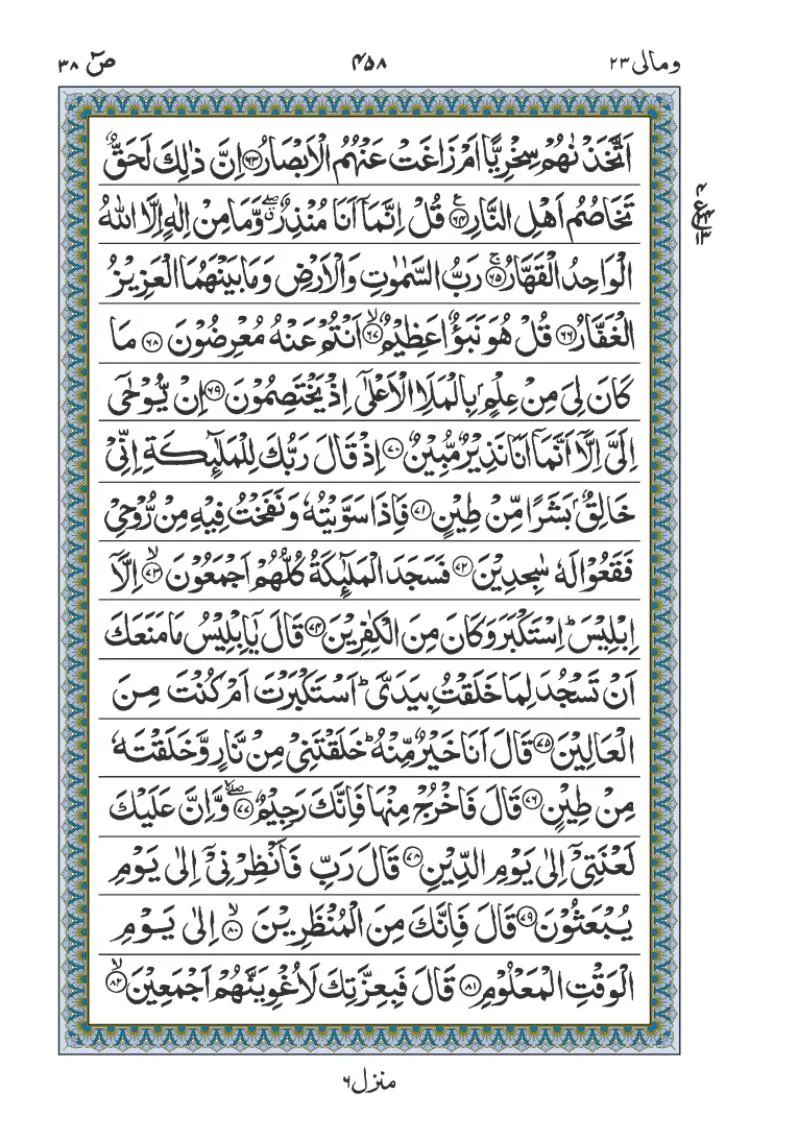 ومالی ۲۳ ۴۵۸ صٓ ۳۸
اَتَّخَذْنٰهُمْ سِخْرِیًّا اَمْ زَاغَتْ عَنْهُمُ الْاَبْصَارُ ﴿۶۳﴾ اِنَّ ذٰلِكَ لَحَقٌّ
تَخَاصُمُ اَهْلِ النَّارِ ﴿۶۴﴾ۧ قُلْ اِنَّمَاۤ اَنَا مُنْذِرٌ ۖۗ وَّمَا مِنْ اِلٰهٍ اِلَّا اللّٰهُ
الْوَاحِدُ الْقَهَّارُ ﴿۶۵﴾ۚ رَبُّ السَّمٰوٰتِ وَالْاَرْضِ وَمَا بَیْنَهُمَا الْعَزِیْزُ
الْغَفَّارُ ﴿۶۶﴾ قُلْ هُوَ نَبَؤٌا عَظِیْمٌ ﴿۶۷﴾ۙ اَنْتُمْ عَنْهُ مُعْرِضُوْنَ ﴿۶۸﴾ مَا
كَانَ لِیَ مِنْ عِلْمٍۭ بِالْمَلَاِ الْاَعْلٰۤی اِذْ یَخْتَصِمُوْنَ ﴿۶۹﴾ اِنْ یُّوْحٰۤی
اِلَیَّ اِلَّاۤ اَنَّمَاۤ اَنَا نَذِیْرٌ مُّبِیْنٌ ﴿۷۰﴾ اِذْ قَالَ رَبُّكَ لِلْمَلٰٓىِٕكَةِ اِنِّیْ
خَالِقٌۢ بَشَرًا مِّنْ طِیْنٍ ﴿۷۱﴾ فَاِذَا سَوَّیْتُهٗ وَنَفَخْتُ فِیْهِ مِنْ رُّوْحِیْ
فَقَعُوْا لَهٗ سٰجِدِیْنَ ﴿۷۲﴾ فَسَجَدَ الْمَلٰٓىِٕكَةُ كُلُّهُمْ اَجْمَعُوْنَ ﴿۷۳﴾ۙ اِلَّاۤ
اِبْلِیْسَ ؕ اِسْتَكْبَرَ وَكَانَ مِنَ الْكٰفِرِیْنَ ﴿۷۴﴾ قَالَ یٰۤاِبْلِیْسُ مَا مَنَعَكَ
اَنْ تَسْجُدَ لِمَا خَلَقْتُ بِیَدَیَّ ؕ اَسْتَكْبَرْتَ اَمْ كُنْتَ مِنَ
الْعَالِیْنَ ﴿۷۵﴾ قَالَ اَنَا خَیْرٌ مِّنْهُ ؕ خَلَقْتَنِیْ مِنْ نَّارٍ وَّخَلَقْتَهٗ
مِنْ طِیْنٍ ﴿۷۶﴾ قَالَ فَاخْرُجْ مِنْهَا فَاِنَّكَ رَجِیْمٌ ﴿۷۷﴾ۖۚ وَّاِنَّ عَلَیْكَ
لَعْنَتِیْۤ اِلٰی یَوْمِ الدِّیْنِ ﴿۷۸﴾ قَالَ رَبِّ فَاَنْظِرْنِیْۤ اِلٰی یَوْمِ
یُبْعَثُوْنَ ﴿۷۹﴾ قَالَ فَاِنَّكَ مِنَ الْمُنْظَرِیْنَ ﴿۸۰﴾ۙ اِلٰی یَوْمِ
الْوَقْتِ الْمَعْلُوْمِ ﴿۸۱﴾ قَالَ فَبِعِزَّتِكَ لَاُغْوِیَنَّهُمْ اَجْمَعِیْنَ ﴿۸۲﴾ۙ
منزل ۶